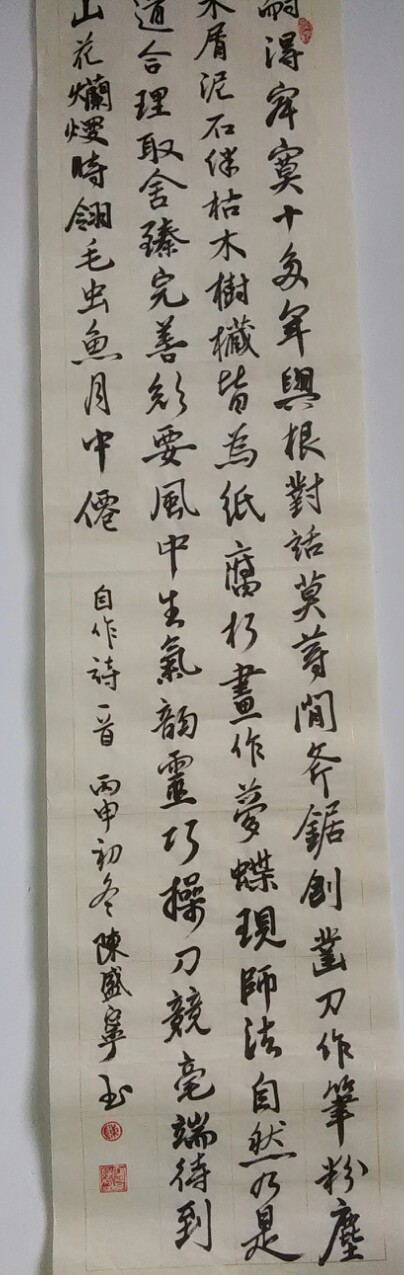 耐得寂寞十多年與根對話莫等閒斧鋸刨鑿刀作筆粉塵
木屑泥石伴枯木樹樁皆為紙腐朽畫作夢蝶現師法自然乃是
道合理取舍臻完善刻要風中生氣韻靈巧操刀競毫端待到
山花爛熳時翎毛虫魚月中僊
自作詩一首 丙申初冬陳盛寧書